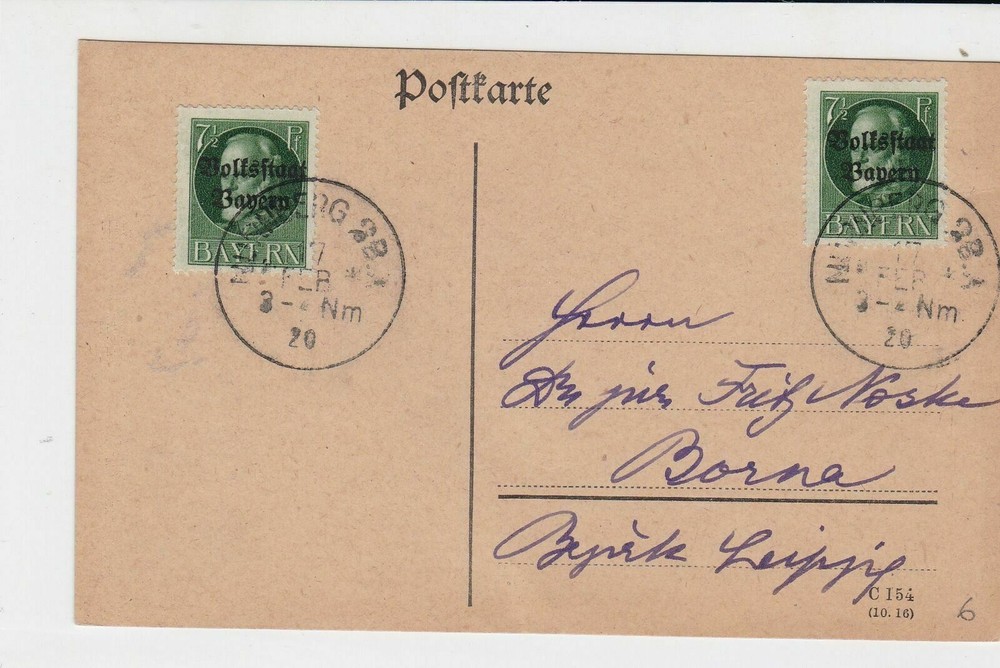 Postkarte
7½ Pf
Volksstaat
Bayern
BAYERN
7½ Pf
Volksstaat
Bayern
BAYERN
NÜRNBERG 2B.A
17
FEB *
3-4 Nm
20
NÜRNBERG 2B.A
17
FEB *
3-4 Nm
20
Herrn
Dr jur Fritz Noske
Borna
Bezirk Leipzig
C 154
(10. 16)
6